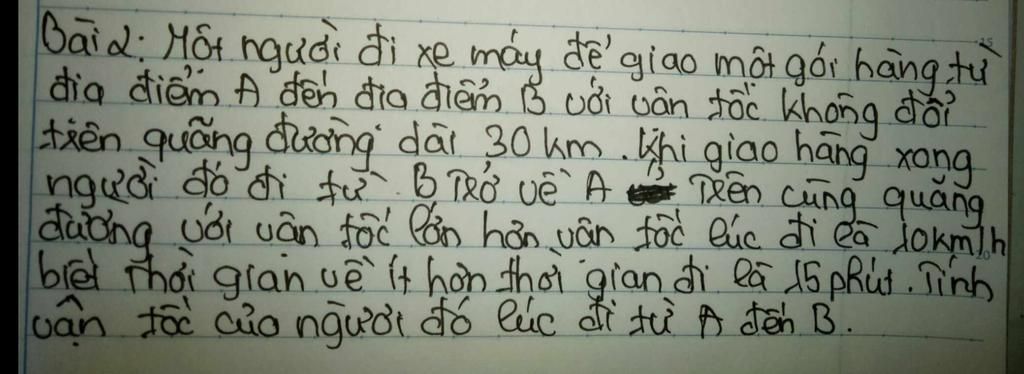 Bài 2: Một người đi xe máy để giao một gói hàng từ
địa điểm A đến địa điểm B với vận tốc không đổi
trên quãng đường dài 30 km. Khi giao hàng xong
người đó đi từ B trở về A trên cùng quãng
đường với vận tốc lớn hơn vận tốc lúc đi là 10km/h
biết thời gian về ít hơn thời gian đi là 15 phút. Tính
vận tốc của người đó lúc đi từ A đến B.